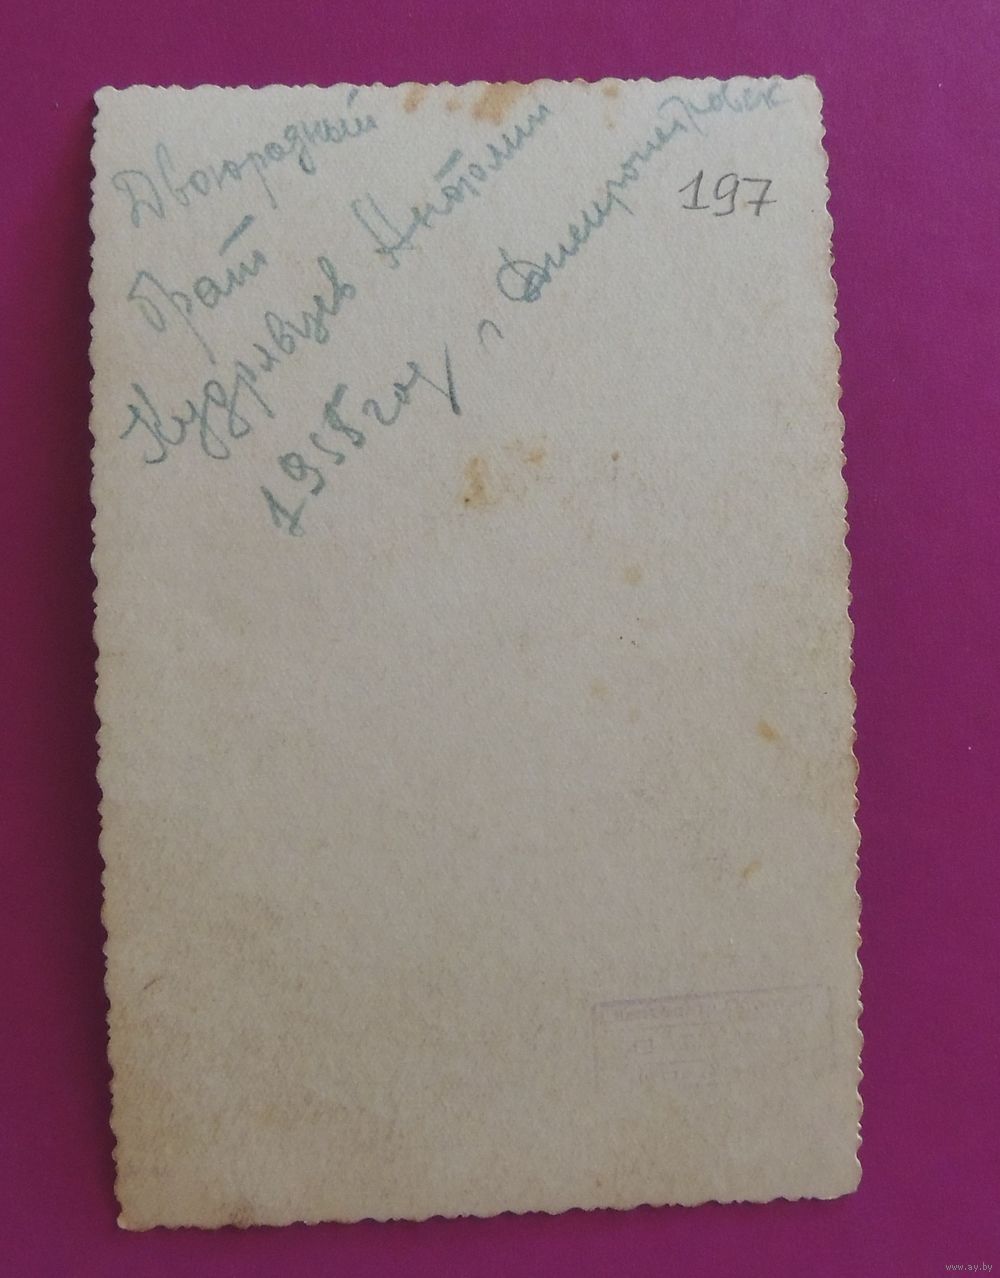 Двоюродный
брат
Кудрявцев Анатолий
1955 год г Днепропетровск
197
www.ay.by